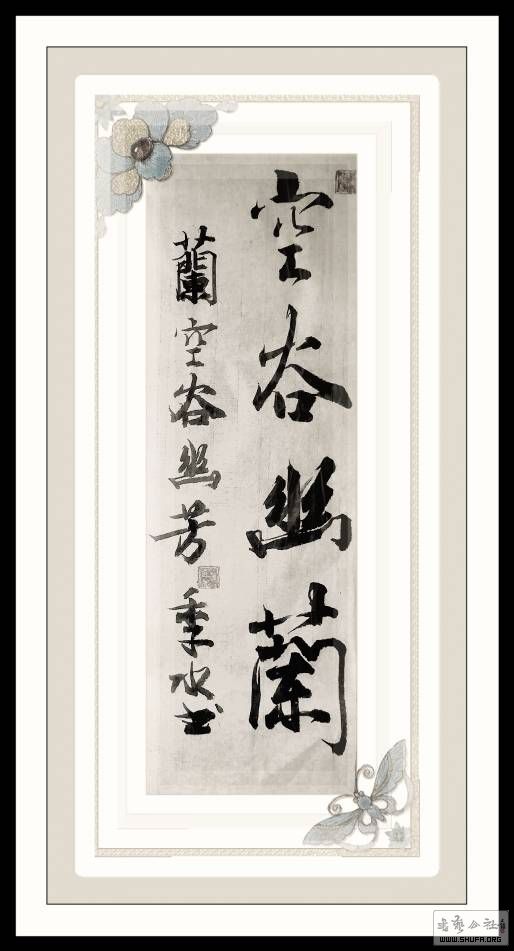 空谷幽蘭
蘭空谷幽芳 季水书
书艺公社
WWW.SHUFA.ORG